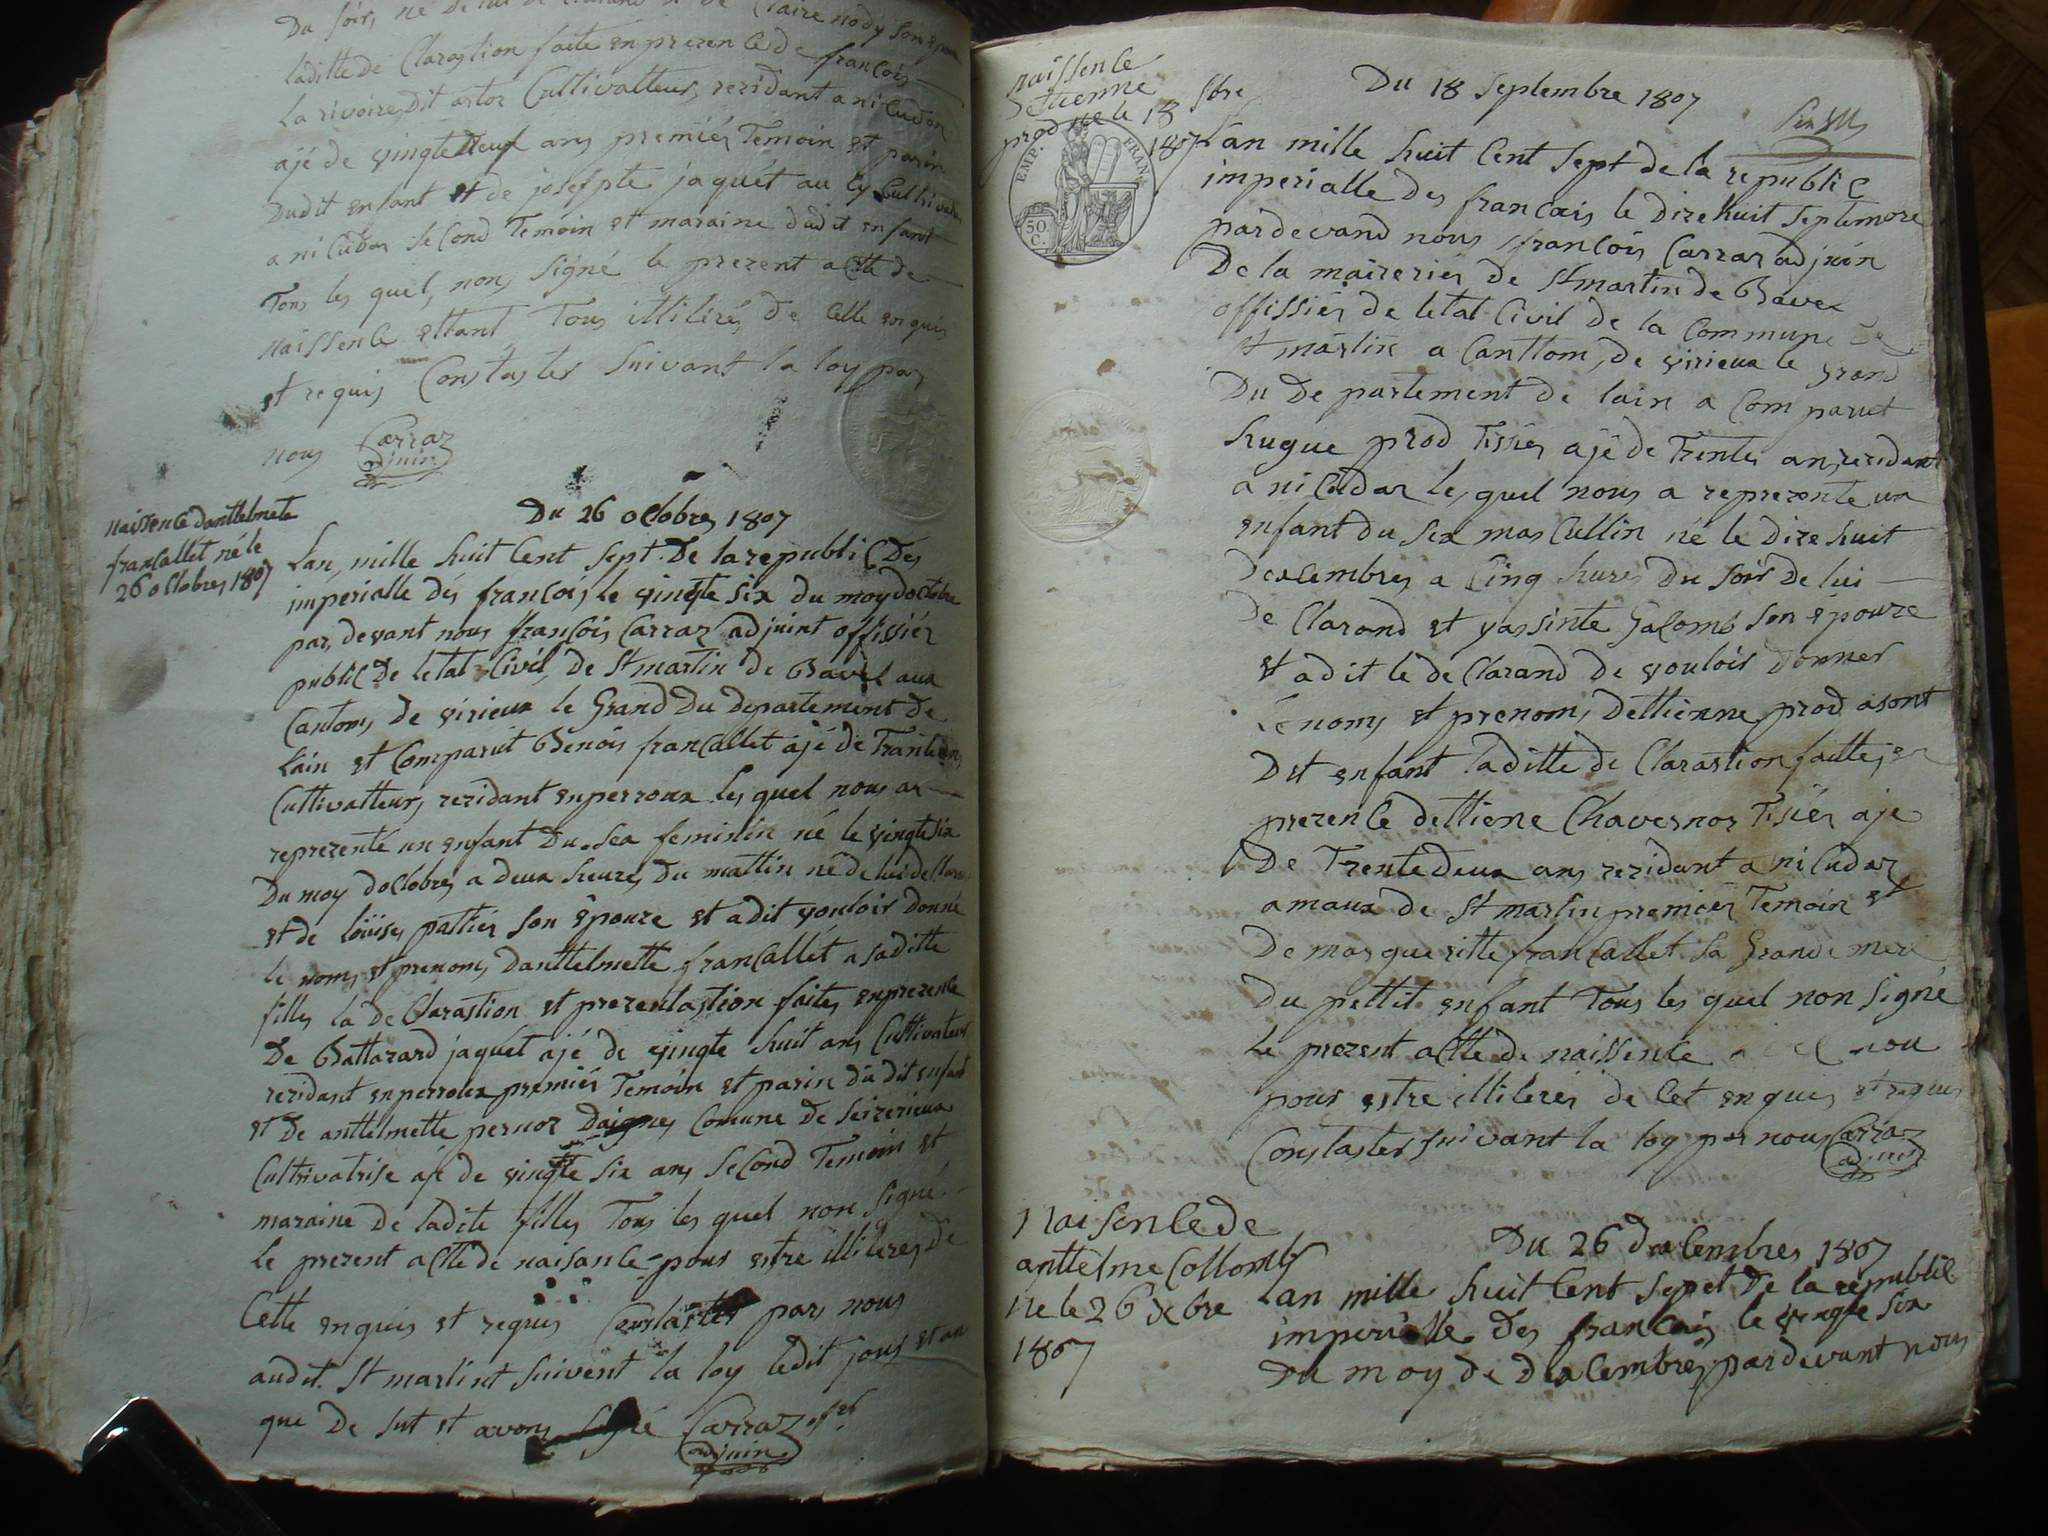 Du soir, né de lui de Clarand et de Claire nody son epouse
laditte de Clarastion faite en prezence de francois
La rivoire, Dit astor Cultivatteur, rezidant a ni cudar
ajé de vingte Neuf ans premiér Temoin et parin
Dudit enfant et de josepte jaquét au ly Cultivatr
a ni cudar second Temoin et maraine dudit enfant
Tous les quel, nons signé le prezent actte de
naissence ettant Tous illiterés De Celle enquis
et requis Constaster suivant la loy par
nous Carraz
adjuin
naissence danttelmete
francallet né le
26 octobres 1807
Du 26 octobres 1807
Lan, mille huit Cent sept. De la republic Dés
imperialle dés francois, le vingte six du moy doctobre
par, devant nous françois Carraz adjuint offissiér
public De letat Civil, de St martin de Bavel aux
Cantons, de virieux le Grand Du departement de
Lain et Comparut Benois francallet ajé de Trante ans
Cultivatteurs, rezidant enperroux les quel nous as
reprezenté un enfant Du, sex feminin né le vingte six
Du moy doctobres, a deux heures, Du mattin né de lui de Claran
et de loüise, pattier son épouze et adit vouloir Donné
le noms, et prenoms, Danttelmette francallét a saditte
filles la de Clarastion et prezentastion faites enprezence
De Battazard jaquét ajé de vingte huit ans Cultivateur
rezidant enperroux premiér Temoin et parin du dit enfant
et De anttelmette pernoz Daignes Comune de Seizerieux
Cultivatrise aje de vingte six ans second Temoin et
maraine De ladite filles Tous les quel non signé
le prezent actte de naisance pour estre illiteres de
Cette enquis et requis Constaster par nous
audit. St martint suivent la loy ledit jours et an
que De sut et avons signé Carraz offer
adjuin
naissence
detienne
prod ne le 18 Sbre
1807
EMP. FRAN.
50 C.
Du 18 Septembre 1807
Lan mille huit Cent sept de la republic
imperialle des francais le dizehuit septembre
pardevand nous francois Carraz adjuin
De la maireries de St martin de Bavel
offissiér de letat Civil de la Commune de
St martin a Canttom, de virieux le grand
Du De partement de lain a Comparut
hugue prod Tissier ajé de Trentes ans, rezidant
a ni Cudar les quel nous a reprezente un
enfant du sex mas Cullin né le Dizehuit
Dexcembres, a Cinq hures Du soir de lui
de Clarand et yassinte Galomb son epouze
et a dit le de Clarand de vouloir Donner
le noms et prenoms, Dettienne prod a sont
Dit enfant laditte de Clarastion faitte, en
prezence dettiene Chavernoz Tisier aje
De Trentedeux ans rezidant a ni Cudaz
amaux de St martin premier Temoin et
De margueritte francallet sa Grande mere
Du pettit enfant Tous les quel non signé
Le prezent actte de naissence nou
pour estre illiteres de Cet enquis et requis
Constaster suivant la loy par nous Carraz
adjuin
Naisence de
anttelme Collomb
ne le 26 xbre
1807
Du 26 Dexcembres 1807
Lan mille huit Cent sept De la republic
imperialle Des francais le vingte six
Du moy de Dexcembres, par devant nous